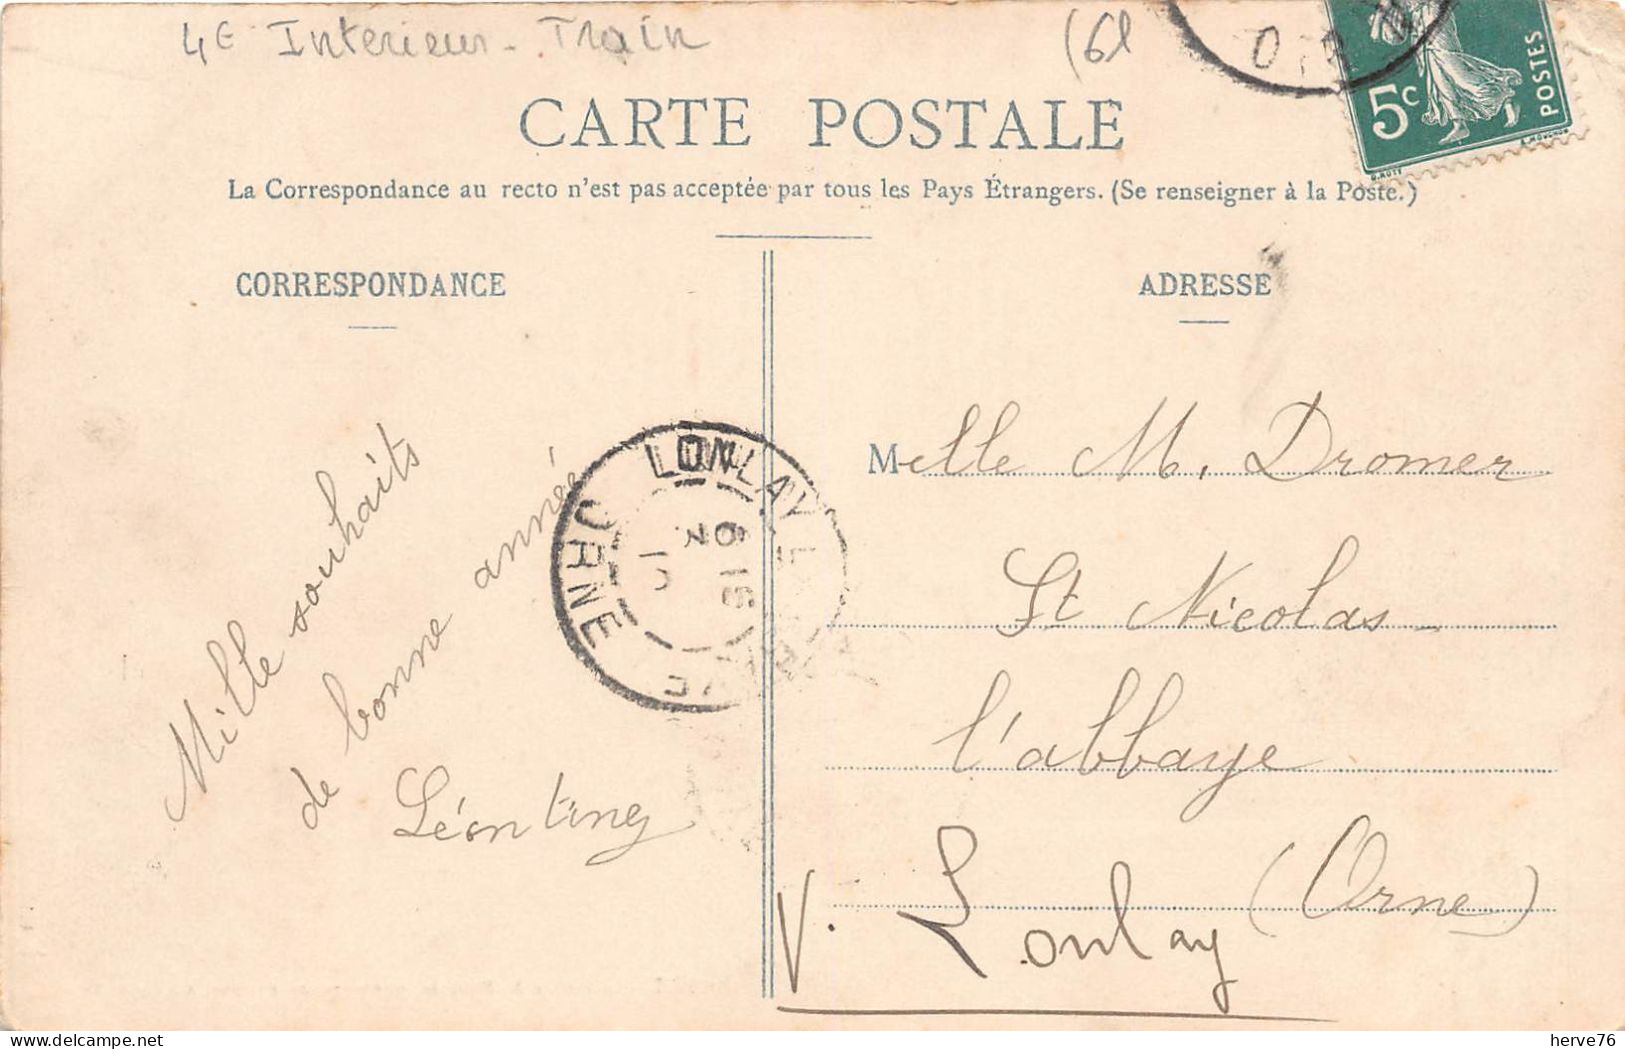 4E Interieur - Train
(61
CARTE POSTALE
La Correspondance au recto n'est pas acceptée par tous les Pays Étrangers. (Se renseigner à la Poste.)
5c
POSTES
CORRESPONDANCE
ADRESSE
Mille souhaits
de bonne année
LONLAY L
ORNE
Melle M. Dromer
St Nicolas
l'abbaye
(Orne)
V. Lonlay
hervé76